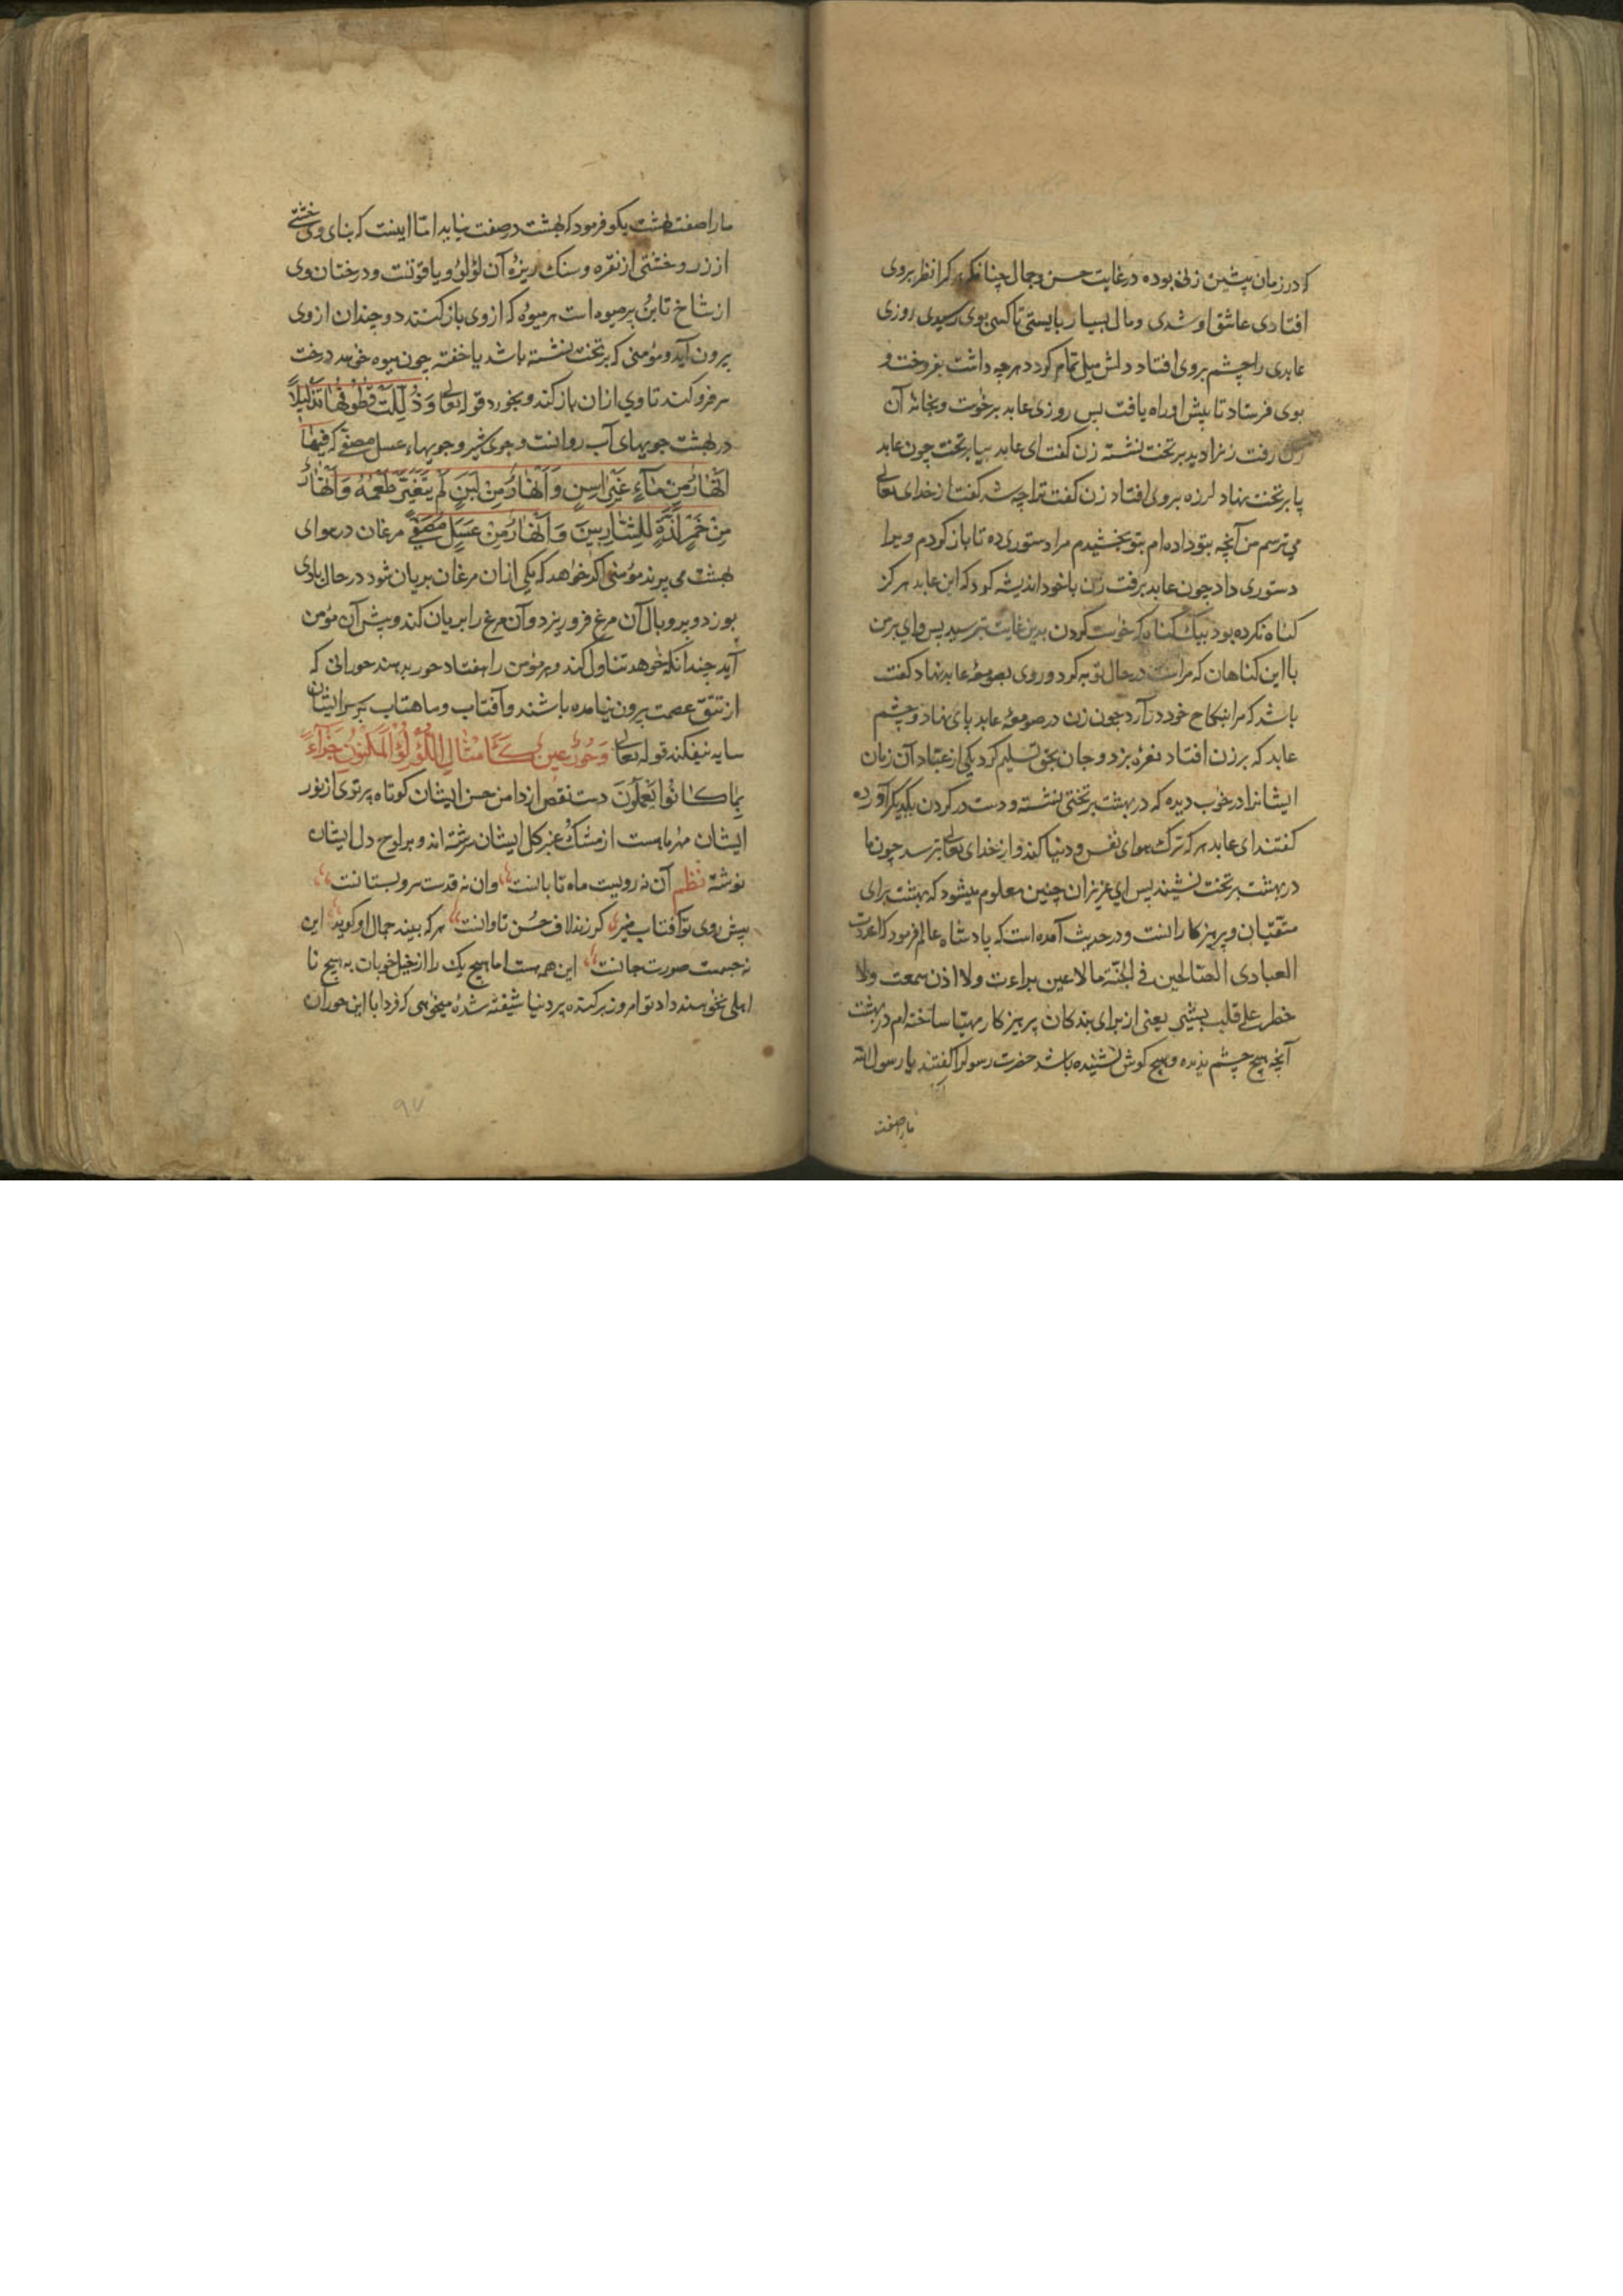 که در زمان پیشین زنی بوده در غایت حسن و جمال چنانکه هر کرا نظر بروی
افتادی عاشق او شدی و مال بسیار بایستی تا کسی بوی رسیدی روزی
عابدی را چشم بروی افتاد دلش میل تمام کرد هرچه داشت بفروخت و
بوی فرستاد تا پیش او راه یافت پس روزی عابد برخوٰست و بخانهٔ آن
زن رفت زنرا دید بر تخت نشسته زن کفت ای عابد بیا بر تخت چون عابد
پا بر تخت نهاد لرزه بروی افتاد زن کفت ترا چه شد کفت از خدای تعالی
می ترسم من آنچه بتو داده ام بتو بخشیدم مرا دستوری ده تا باز کردم ویرا
دستوری داد چون عابد برفت زن با خود اندیشه کرد که این عابد هرکز
کناه نکرده بود بیک کناه که خوٰست کردن بدین غایت بترسید پس وای بر من
با این کناهان که مراست در حال توبه کرد و روی بصومعهٔ عابد نهاد کفت
باشد که مرا بنکاح خود در آرد چون زن در صومعهٔ عابد پای نهاد و چشم
عابد که بر زن افتاد نعره بزد و جان بحق تسلیم کرد یکی از عبّاد آن زمان
ایشانرا در خوٰب دیده که در بهشت بر تختی نشسته و دست در کردن یکدیکر آورده
کفتند ای عابد هر که ترک هوای نفس و دنیا کند و از خدای تعالی بترسد چون ما
در بهشت بر تخت نشیند پس ای عزیزان چنین معلوم میشود که بهشت برای
متّقیان و پرهیزکارانست و در حدیث آمده است که پادشاه عالم فرمود که اعددت
العبادی الصّالحین فی الجنّة ما لا عین براءت ولا اذن سمعت ولا
خطر علی قلب بشیر یعنی از برای بندکان پرهیزکار مهیّا ساخته ام در بهشت
آنچه هیچ چشم ندیده و هیچ کوش نشنیده باشد حضرت رسولرا کفتند یا رسول الله
مارا صفت
مارا صفت بهشت بکو فرمود که بهشت در صفت نیاید امّا اینست که بنای وی خشتی
از زر و خشتی از نقره و سنک ریزهٔ آن لؤلؤ و یاقوتست و درختان وی
از شاخ تا بن پر میوه است هر میوهٔ که از وی باز کنند دو چندان از وی
بیرون آید و مؤمنی که بر تخت نشسته باشد یا خفته چون میوه خوٰهد درخت
سر فرو کند تا وی از ان باز کند و بخورد قوله تعالی وَذُلِّلَتْ قُطُوفُهَا تَذْلِیلاً
در بهشت جویهای آب روانست و جوی شیر و جویهاء عسل مصفّی که فِیهَا
اَنْهَارٌ مِنْ مَآءٍ غَیْرِ اٰسِنٍ وَ اَنْهَارٌ مِنْ لَبَنٍ لَمْ یَتَغَیَّرْ طَعْمُهُ وَ اَنْهَارٌ
مِنْ خَمْرٍ لَذَّةٍ لِلشَّارِبِینَ وَ اَنْهَارٌ مِنْ عَسَلٍ مُصَفًّی مرغان در هوای
بهشت می پرند مؤمنی اکر خوٰاهد که یکی از ان مرغان بریان شود در حال بادی
بوزد و پر و بال آن مرغ فرو ریزد و آن مرغ را بریان کند و پیش آن مؤمن
آید چندانکه خوٰهد تناول کند و هر مؤمن را هفتاد حور بدهند حورانی که
از تتق عصمت بیرون نیامده باشند و آفتاب و ماهتاب بر سر ایشان
سایه نیفکند قوله تعالی وَحُورٌ عِینٌ کَاَمْثَالِ اللُّؤْلُؤِ الْمَکْنُونِ جَزَآءً
بِمَا کَانُوا یَعْمَلُونَ دست نقص از دامن حسن ایشان کوتاه پرتوی از نور
ایشان مهر ماهست از مشک و عنبر کل ایشان سرشته اند و بر لوح دل ایشان
نوشته نظم آن نه رویست ماه تابانست وان نه قدست سرو بستانست
پیش روی تو آفتاب منیر کر زند لاف حُسن تاوانست هر که بیند جمال او کوید این
نه جسمست صورت جانست این همه هست اما هیچ یک را از خیل خوبان به هیچ نا
اهلی نخوٰهند داد تو امروز بر کنده پیر دنیا شیفته شدهٔ میخوٰهی که فردا با این حوران
۹۷